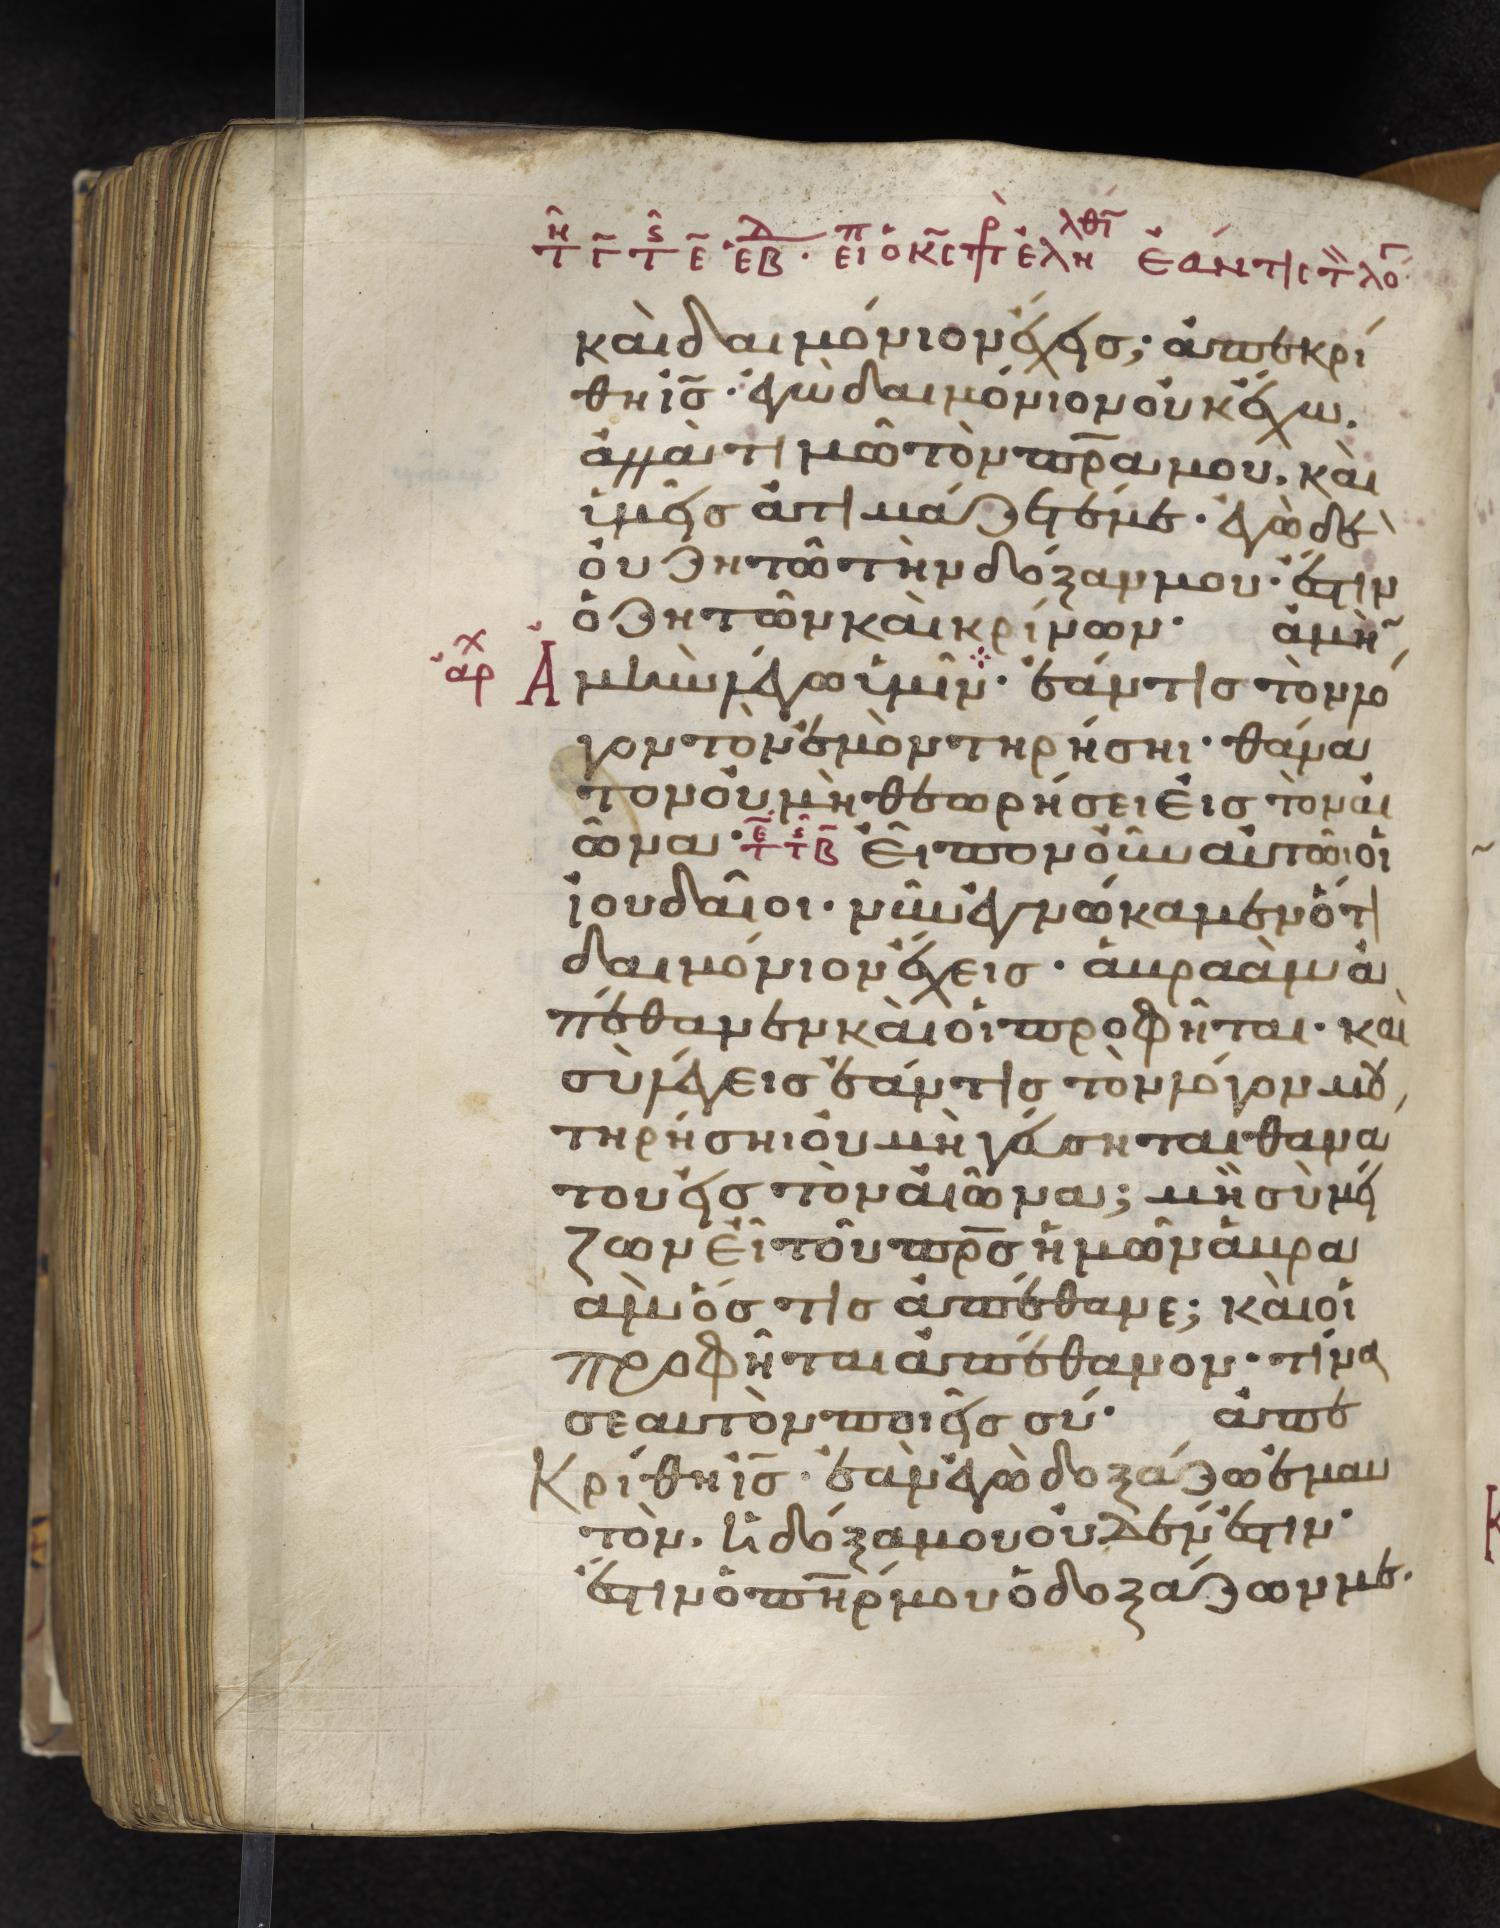 καὶ δαιμόνιον ἔχεις; ἀπεκρί
θη ἰς̅· ἐγὼ δαιμόνιον οὐκ ἔχω.
ἀλλὰ τιμῶ τὸν πρ̅α μου. καὶ
ὑμεῖς ἀτιμάζετέ με· ἐγὼ δὲ
οὐ ζητῶ τὴν δόξαν μου· ἔστιν
ὁ ζητῶν καὶ κρίνων· ἀμὴ̅
ἀρχ Ἀμὴν λέγω ὑμῖν· ἐάν τις τὸν λό
γον τὸν ἐμὸν τηρήσηι· θάνα
τον οὐ μὴ θεωρήσει εἰς τὸν αἰ
ῶνα· Εἶπον οὖν αὐτῶι οἱ
ἰουδαῖοι· νῦν ἐγνώκαμεν ὅτι
δαιμόνιον ἔχεις· ἀβραὰμ ἀ
πέθανεν καὶ οἱ προφῆται· καὶ
σὺ λέγεις ἐάν τις τὸν λόγον μου
τηρήσηι οὐ μὴ γεύσηται θανά
του εἰς τὸν αἰῶνα; μὴ σὺ μεί
ζων εἶ τοῦ πρ̅ς ἡμῶν ἀβρα
ὰμ ὅστις ἀπέθανε; καὶ οἱ
προφῆται ἀπέθανον· τίνα
σεαυτὸν ποιεῖς σύ· ἀπε
Κρίθη ἰς̅· ἐὰν ἐγὼ δοξάζω ἐμαυ
τὸν. ἡ δόξα μου οὐδέν ἐστιν·
ἔστιν ὁ πη̅ρ μου ὁ δοξάζων με.